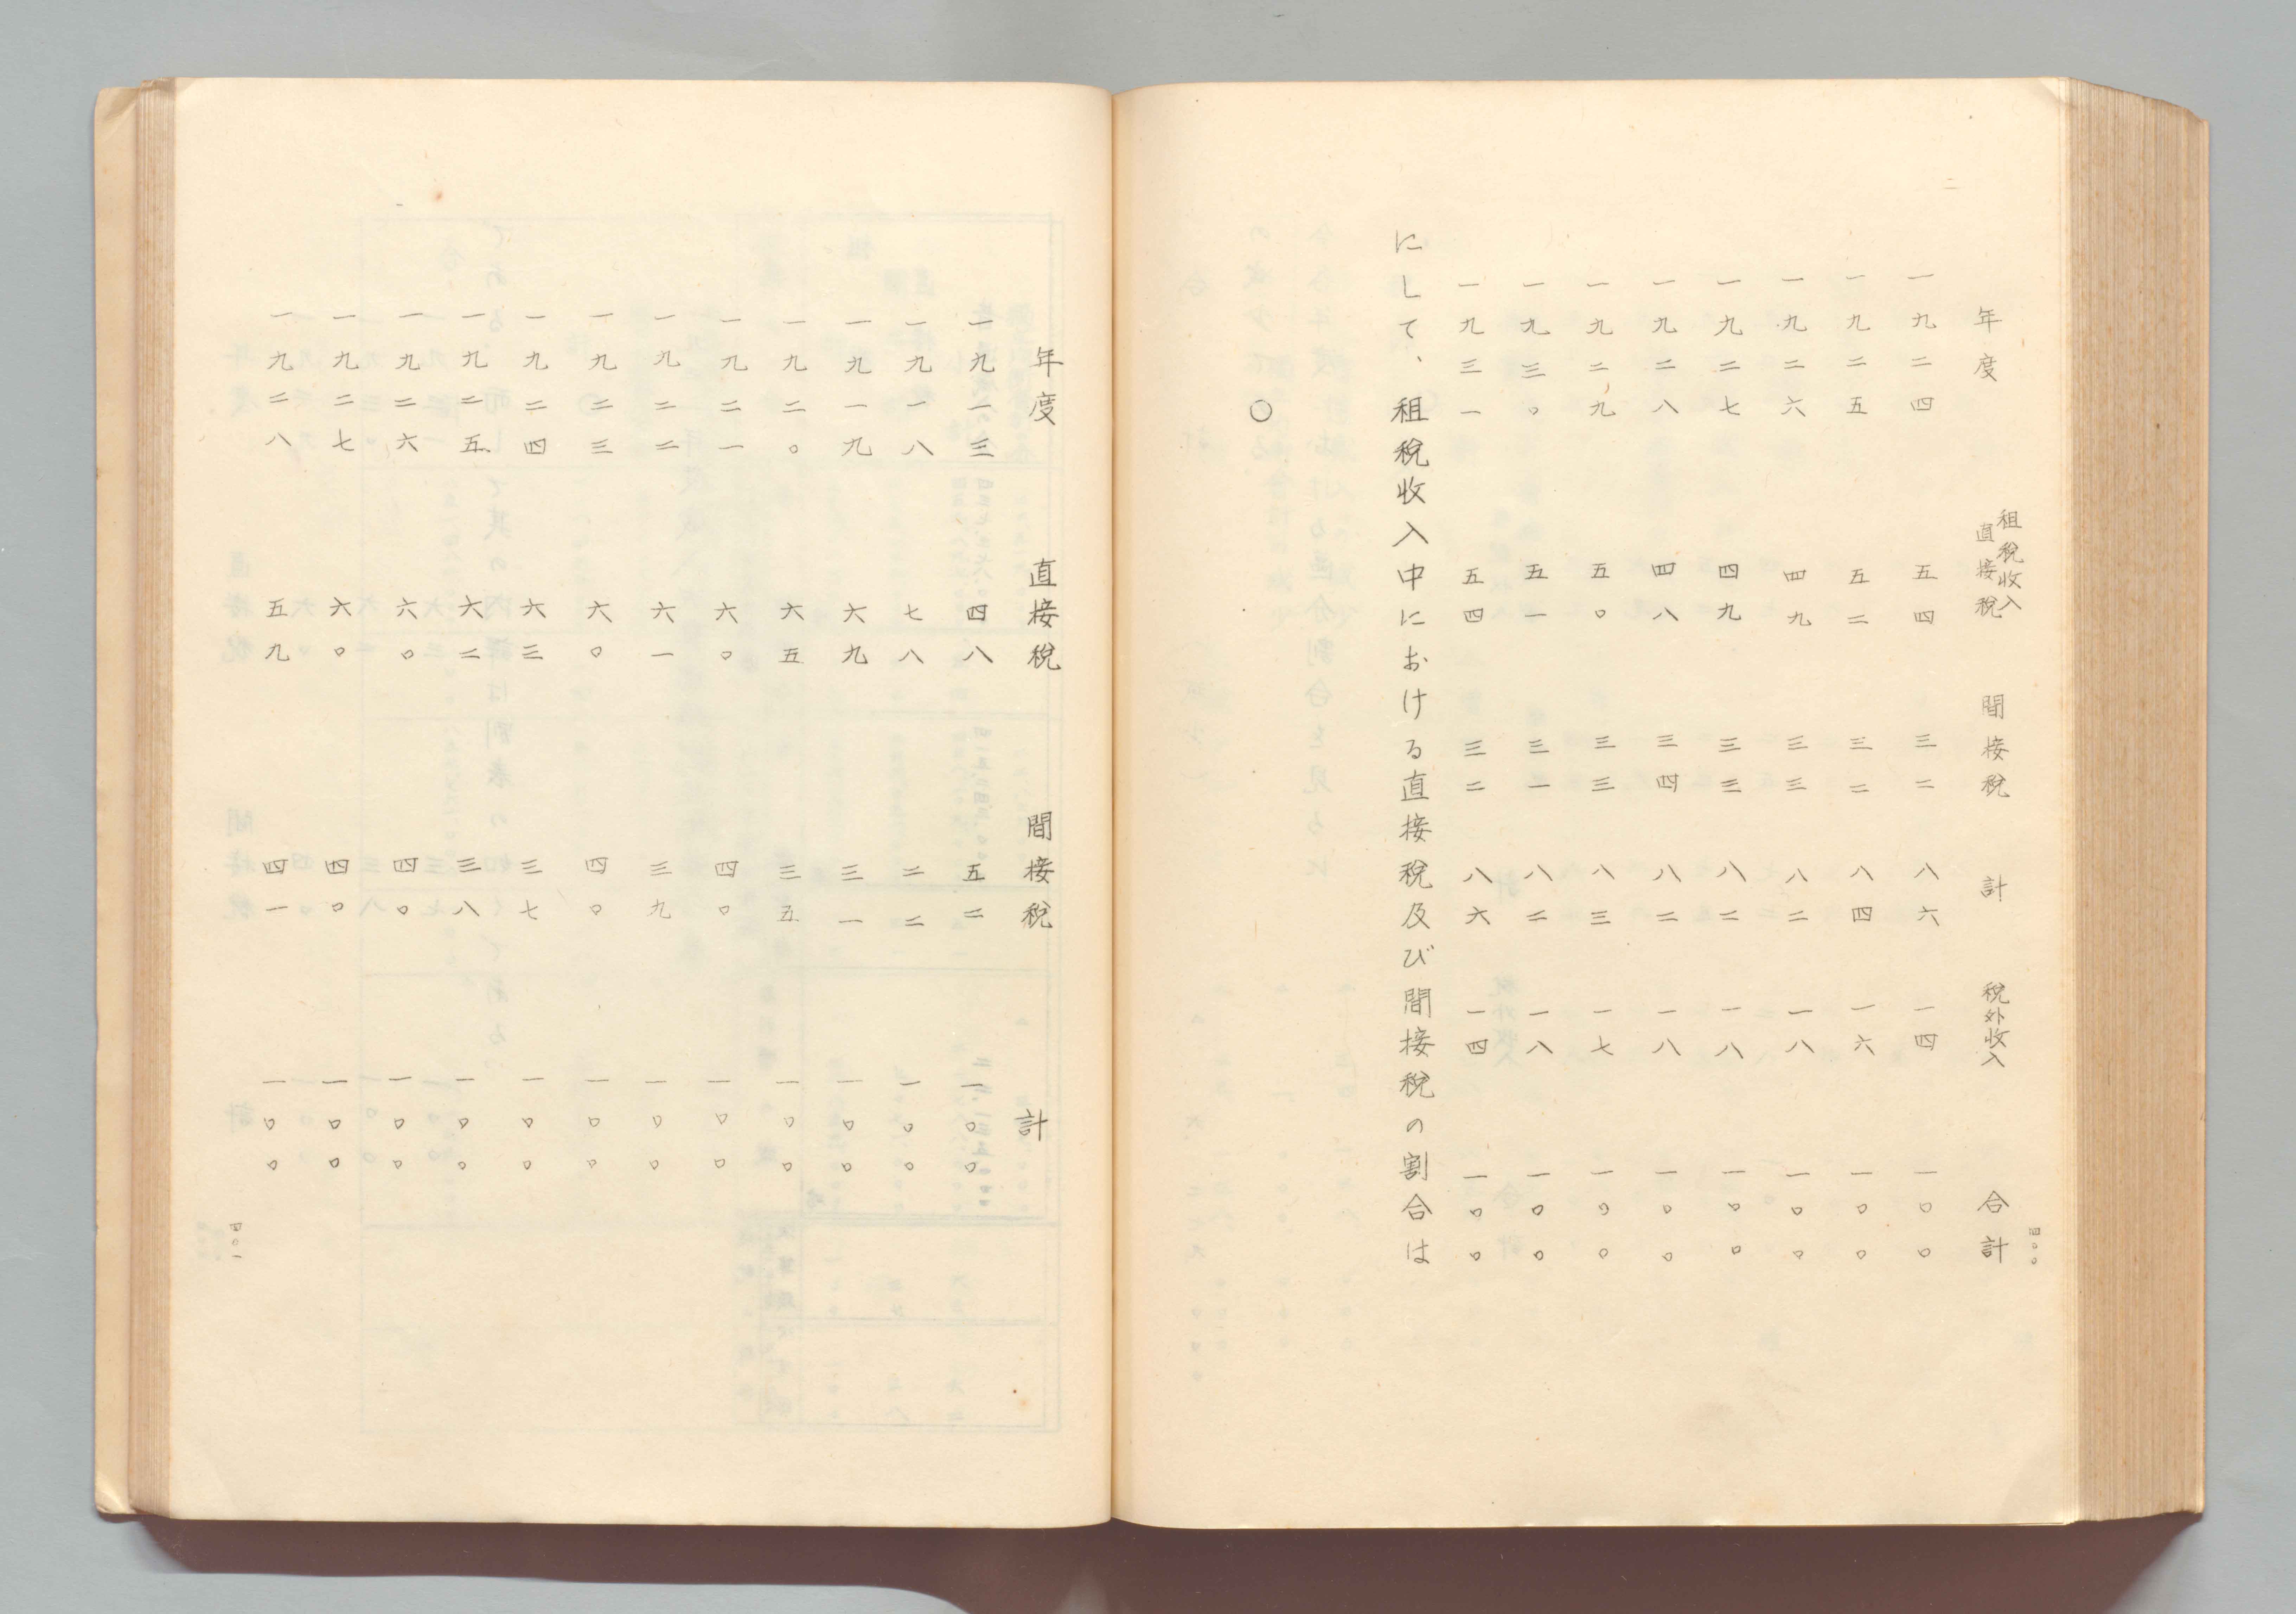 四〇〇
年度 租稅收入 直接稅 間接稅 計 稅外收入 合計
一九二四 五四 三二 八六 一四 一〇〇
一九二五 五二 三二 八四 一六 一〇〇
一九二六 四九 三三 八二 一八 一〇〇
一九二七 四九 三三 八二 一八 一〇〇
一九二八 四八 三四 八二 一八 一〇〇
一九二九 五〇 三三 八三 一七 一〇〇
一九三〇 五一 三一 八二 一八 一〇〇
一九三一 五四 三二 八六 一四 一〇〇
にして、租稅收入中における直接稅及び間接稅の割合は
〇
年度 直接稅 間接稅 計
一九一三 四八 五二 一〇〇
一九一八 七八 二二 一〇〇
一九一九 六九 三一 一〇〇
一九二〇 六五 三五 一〇〇
一九二一 六〇 四〇 一〇〇
一九二二 六一 三九 一〇〇
一九二三 六〇 四〇 一〇〇
一九二四 六三 三七 一〇〇
一九二五 六二 三八 一〇〇
一九二六 六〇 四〇 一〇〇
一九二七 六〇 四〇 一〇〇
一九二八 五九 四一 一〇〇
四〇一